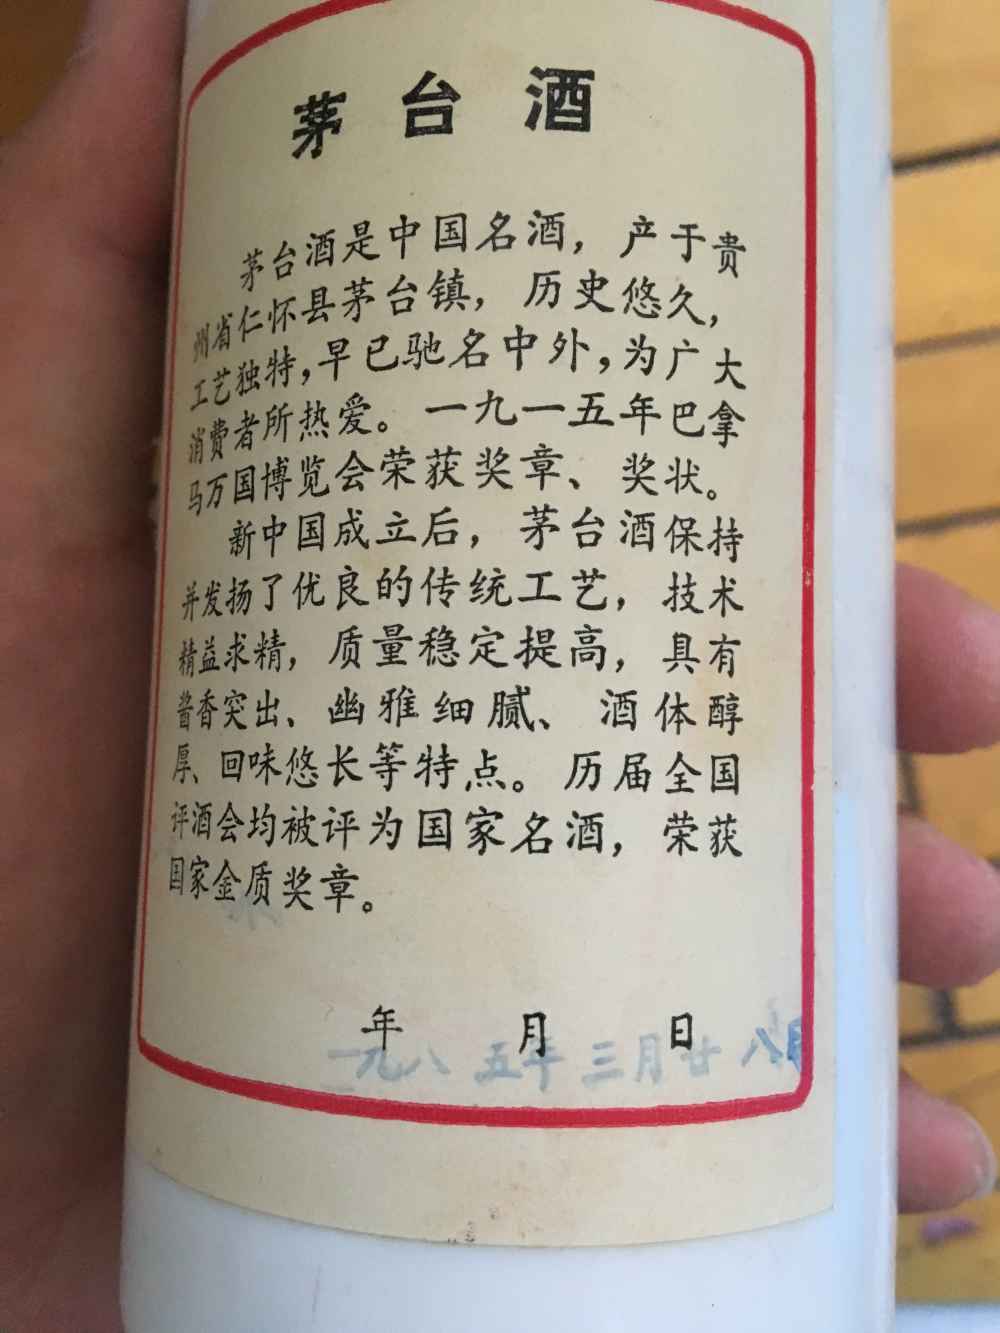 茅台酒
茅台酒是中国名酒，产于贵
州省仁怀县茅台镇，历史悠久，
工艺独特，早已驰名中外，为广大
消费者所热爱。一九一五年巴拿
马万国博览会荣获奖章、奖状。
新中国成立后，茅台酒保持
并发扬了优良的传统工艺，技术
精益求精，质量稳定提高，具有
酱香突出、幽雅细腻、酒体醇
厚、回味悠长等特点。历届全国
评酒会均被评为国家名酒，荣获
国家金质奖章。
年 月 日
一九八五年三月廿八日